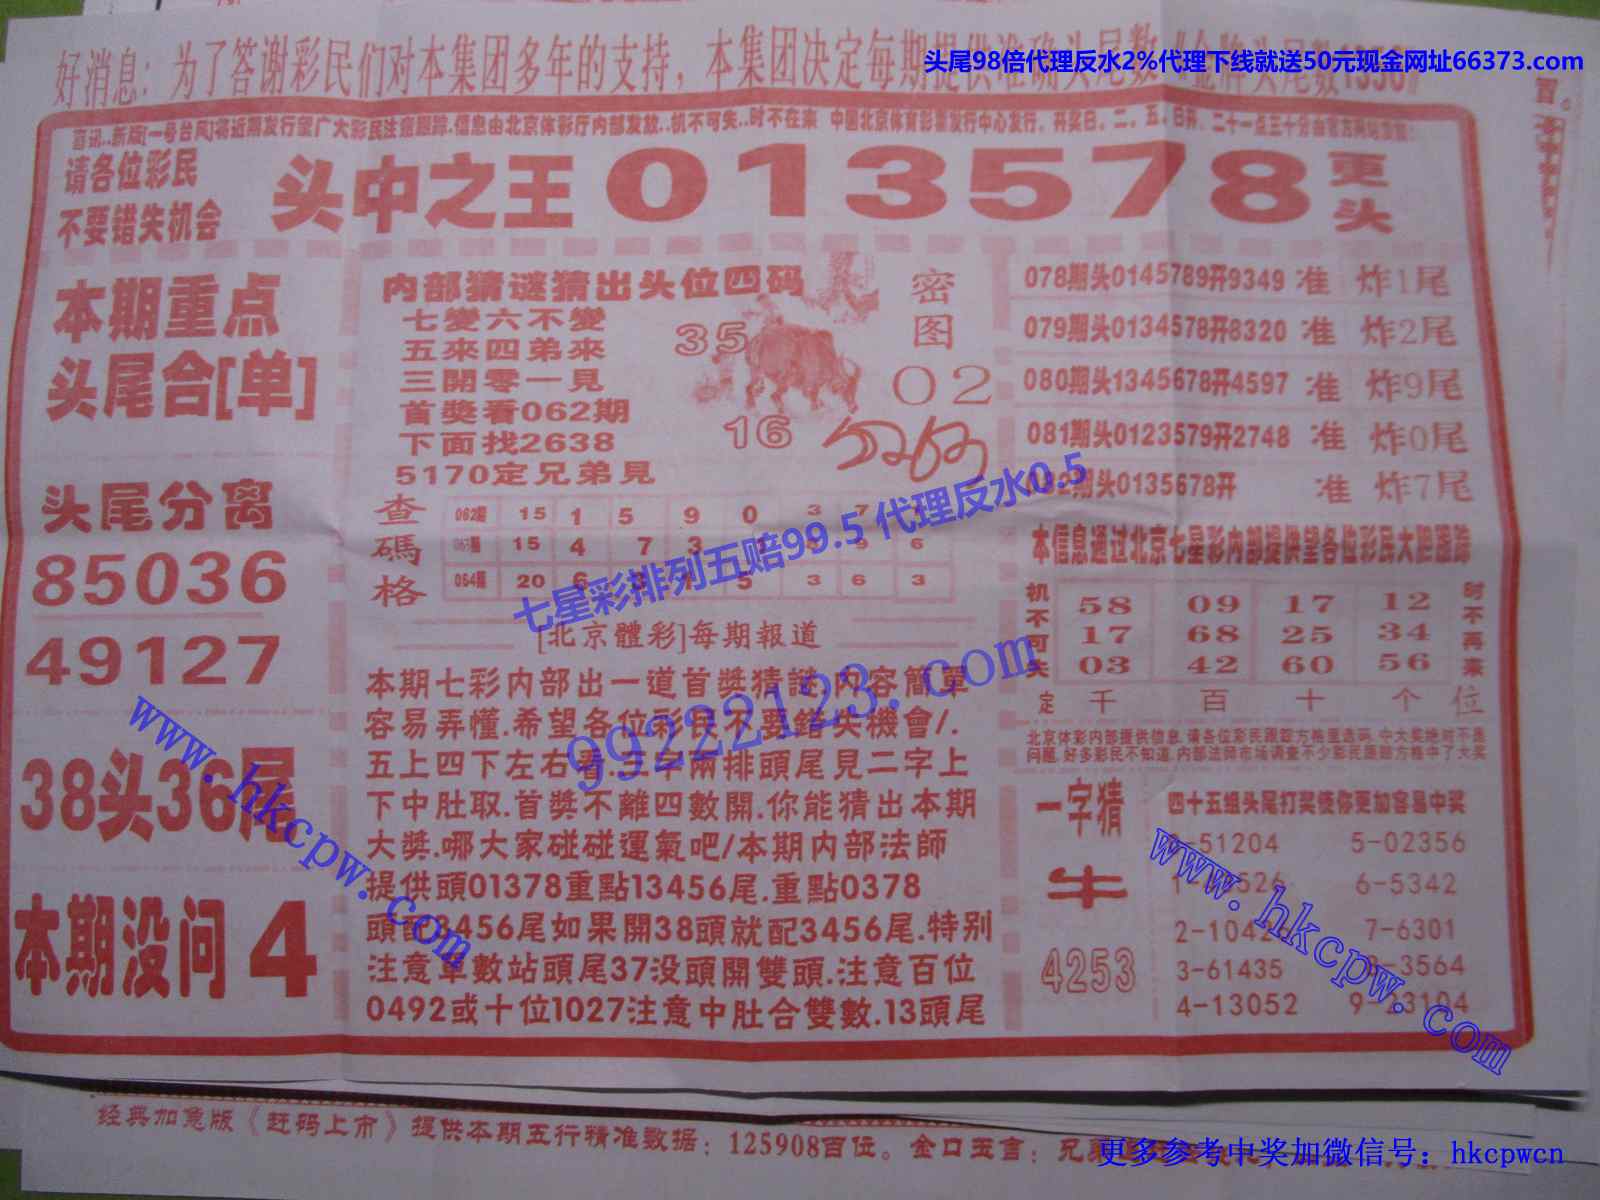 好消息：为了答谢彩民们对本集团多年的支持，本集团决定每期提供准确头尾数
头尾98倍代理反水2%代理下线就送50元现金网址66373.com
喜讯..新版[一号台风]将近期发行望广大彩民注意跟踪.信息由北京体彩厅内部发放..机不可失..时不在来
请各位彩民
不要错失机会
头中之王013578
更头
本期重点
头尾合[单]
头尾分离
85036
49127
38头36尾
本期没问4
内部猜谜猜出头位四码
七變六不變
五來四弟來
三開零一見
首獎看062期
下面找2638
5170定兄弟見
35
16
密图
02
查碼格
062期 15 1 5 9 0 3 7
15 4 7 3 9 6
064期 20 6 5 3 6 3
七星彩排列五赔99.5 代理反水0.5
[北京體彩]每期報道
99222123.com
本期七彩内部出一道首獎猜謎.内容簡單
容易弄懂.希望各位彩民不要錯失機會/.
五上四下左右看.二字兩排頭尾見二字上
下中肚取.首獎不離四數開.你能猜出本期
大獎.哪大家碰碰運氣吧/本期内部法師
提供頭01378重點13456尾.重點0378
頭配3456尾如果開38頭就配3456尾.特别
注意單數站頭尾37没頭開雙頭.注意百位
0492或十位1027注意中肚合雙數.13頭尾
078期头0145789开9349 准 炸1尾
079期头0134578开8320 准 炸2尾
080期头1345678开4597 准 炸9尾
081期头0123579开2748 准 炸0尾
082期头0135678开 准 炸7尾
本信息通过北京七星彩内部提供望各位彩民大胆跟踪
机不可失
时不再来
58 09 17 12
17 68 25 34
03 42 60 56
定 千 百 十 个 位
北京体彩内部提供信息.请各位彩民跟踪方格里选码.中大奖绝对不是
问题.好多彩民不知道.内部法网市场调查不少彩民跟踪方格中了大奖
一字猜
牛
4253
四十五组头尾打奖使你更加容易中奖
51204 5-02356
6-5342
7-6301
3-61435 3564
4-13052 9-23104
www.hkcpw.com
www.hkcpw.com
经典加急版《赶码上市》提供本期五行精准数据：125908百位。金口玉言：
更多参考中奖加微信号：hkcpwcn